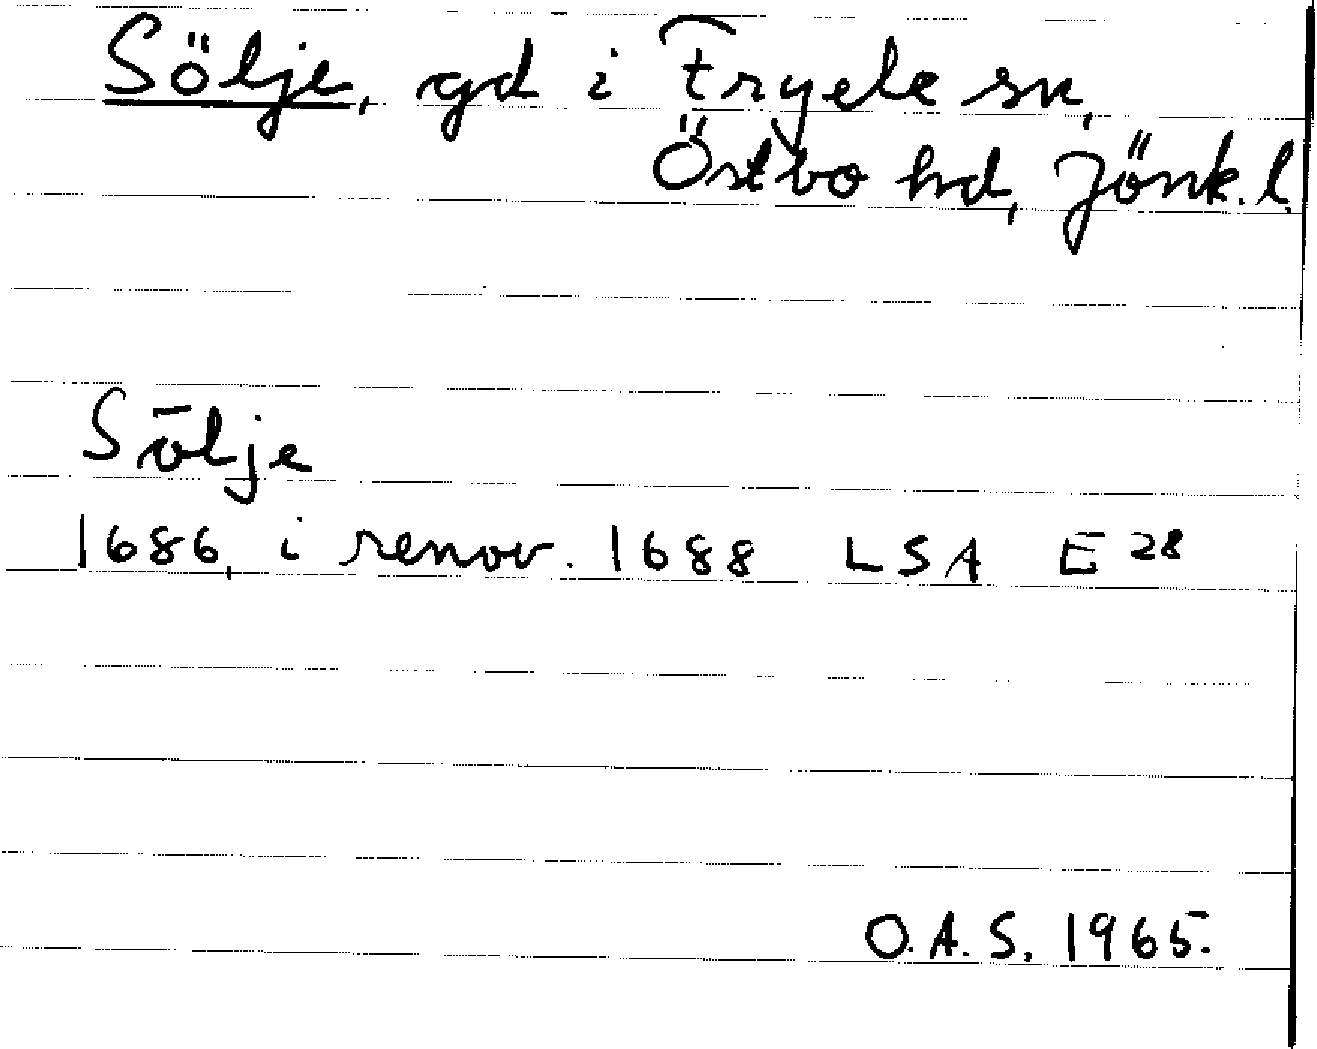 Sölje, gd i Fryele sn,
Östbo hd, Jönk. l.
Sōlje
1686, i renov. 1688 LSA E 28
O.A.S. 1965.